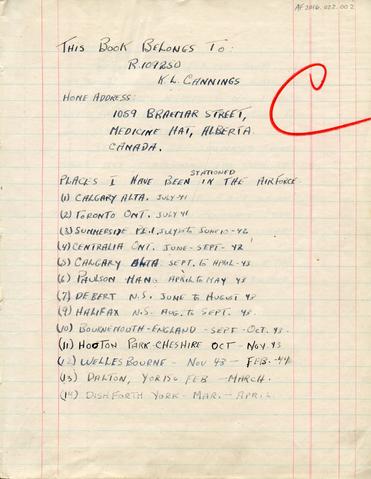 AF2016.022.002
THIS BOOK BELONGS TO:
R.109250
K.L. CANNINGS
HOME ADDRESS:
1059 BRAEMAR STREET,
MEDICINE HAT, ALBERTA.
CANADA.
STATIONED
PLACES I HAVE BEEN IN THE AIRFORCE
(1) CALGARY ALTA. JULY 41
(2) TORONTO ONT. JULY 41
(3) SUMMERSIDE P.E.I. JULY 20 to JUNE 10-42
(4) CENTRALIA ONT. JUNE-SEPT-42
(5) CALGARY ALTA SEPT. to APRIL-43
(6) PAULSON MAN. APRIL to MAY 43
(7) DEBERT N.S. JUNE to AUGUST 43
(9) HALIFAX N.S. AUG. to SEPT. 43.
(10) BOURNEMOUTH-ENGLAND-SEPT-OCT. 43.
(11) HOOTON PARK-CHESHIRE OCT-NOV. 43
(12) WELLESBOURNE - NOV 43 - FEB. 44
(13) DALTON, YORKS FEB - MARCH.
(14) DISHFORTH YORK - MAR. - APRIL